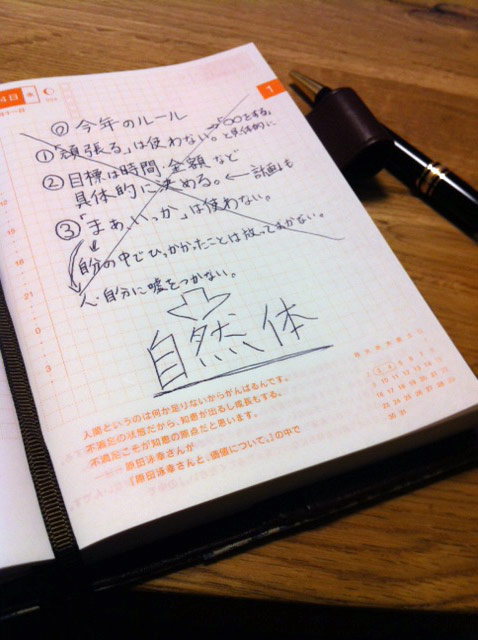 4日
1
⓪ 今年のルール
①「頑張る」は使わない。→「○○をする」
と具体的に
②目標は時間・金額など
具体的に決める。←「計画」も
③「まぁ、いっか」は使わない。
自分の中でひっかかったことは放っておかない。
人・自分に嘘をつかない。
自然体
12
15
18
21
0
3
人間というのは何か足りないからがんばるんです。
不満足の状態だから、知恵が出るし成長もする。
不満足こそが知恵の原点だと思います。
──原田泳幸さんが
『原田泳幸さんと、価値について。』の中で